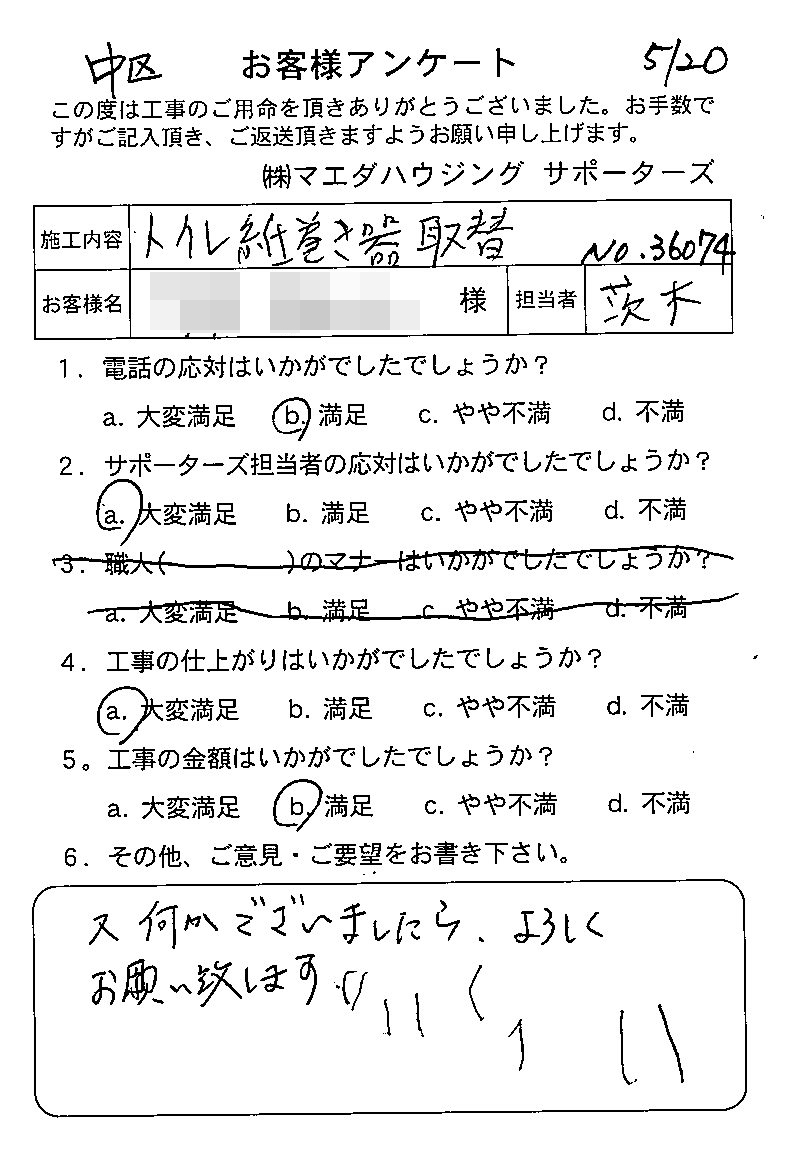 中区 お客様アンケート 5/20
この度は工事のご用命を頂きありがとうございました。お手数で
すがご記入頂き、ご返送頂きますようお願い申し上げます。
㈱マエダハウジング サポーターズ
施工内容 トイレ紙巻き器取替 No.36074
お客様名 様 担当者 茨木
1. 電話の応対はいかがでしたでしょうか？
a. 大変満足 b. 満足 c. やや不満 d. 不満
2. サポーターズ担当者の応対はいかがでしたでしょうか？
a. 大変満足 b. 満足 c. やや不満 d. 不満
3. 職人( )のマナーはいかがでしたでしょうか？
a. 大変満足 b. 満足 c. やや不満 d. 不満
4. 工事の仕上がりはいかがでしたでしょうか？
a. 大変満足 b. 満足 c. やや不満 d. 不満
5。工事の金額はいかがでしたでしょうか？
a. 大変満足 b. 満足 c. やや不満 d. 不満
6. その他、ご意見・ご要望をお書き下さい。
又何かございましたら、よろしく
お願い致します